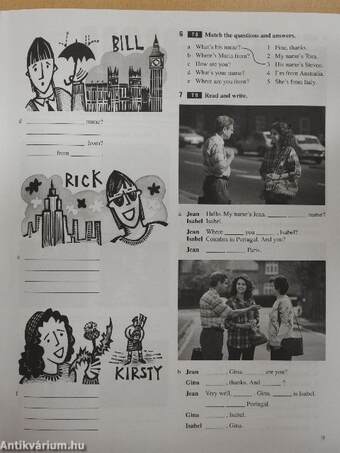 BILL
d ________ name?
________ from?
from ________
RICK
e
KIRSTY
f
6 Match the questions and answers.
a What's his name? 1 Fine, thanks.
b Where's Maria from? 2 My name's Tom.
c How are you? 3 His name's Steven.
d What's your name? 4 I'm from Australia.
e Where are you from? 5 She's from Italy.
7 Read and write.
a Jean Hello. My name's Jean. ________ name?
Isabel Isabel.
Jean Where ________ you ________, Isabel?
Isabel Coimbra in Portugal. And you?
Jean ________ Paris.
b Jean ________, Gina. ________ are you?
Gina ________, thanks. And ________?
Jean Very well, ________. Gina, ________ is Isabel.
________ Portugal.
Gina ________, Isabel.
Isabel ________, Gina.
9
Antikvárium.hu